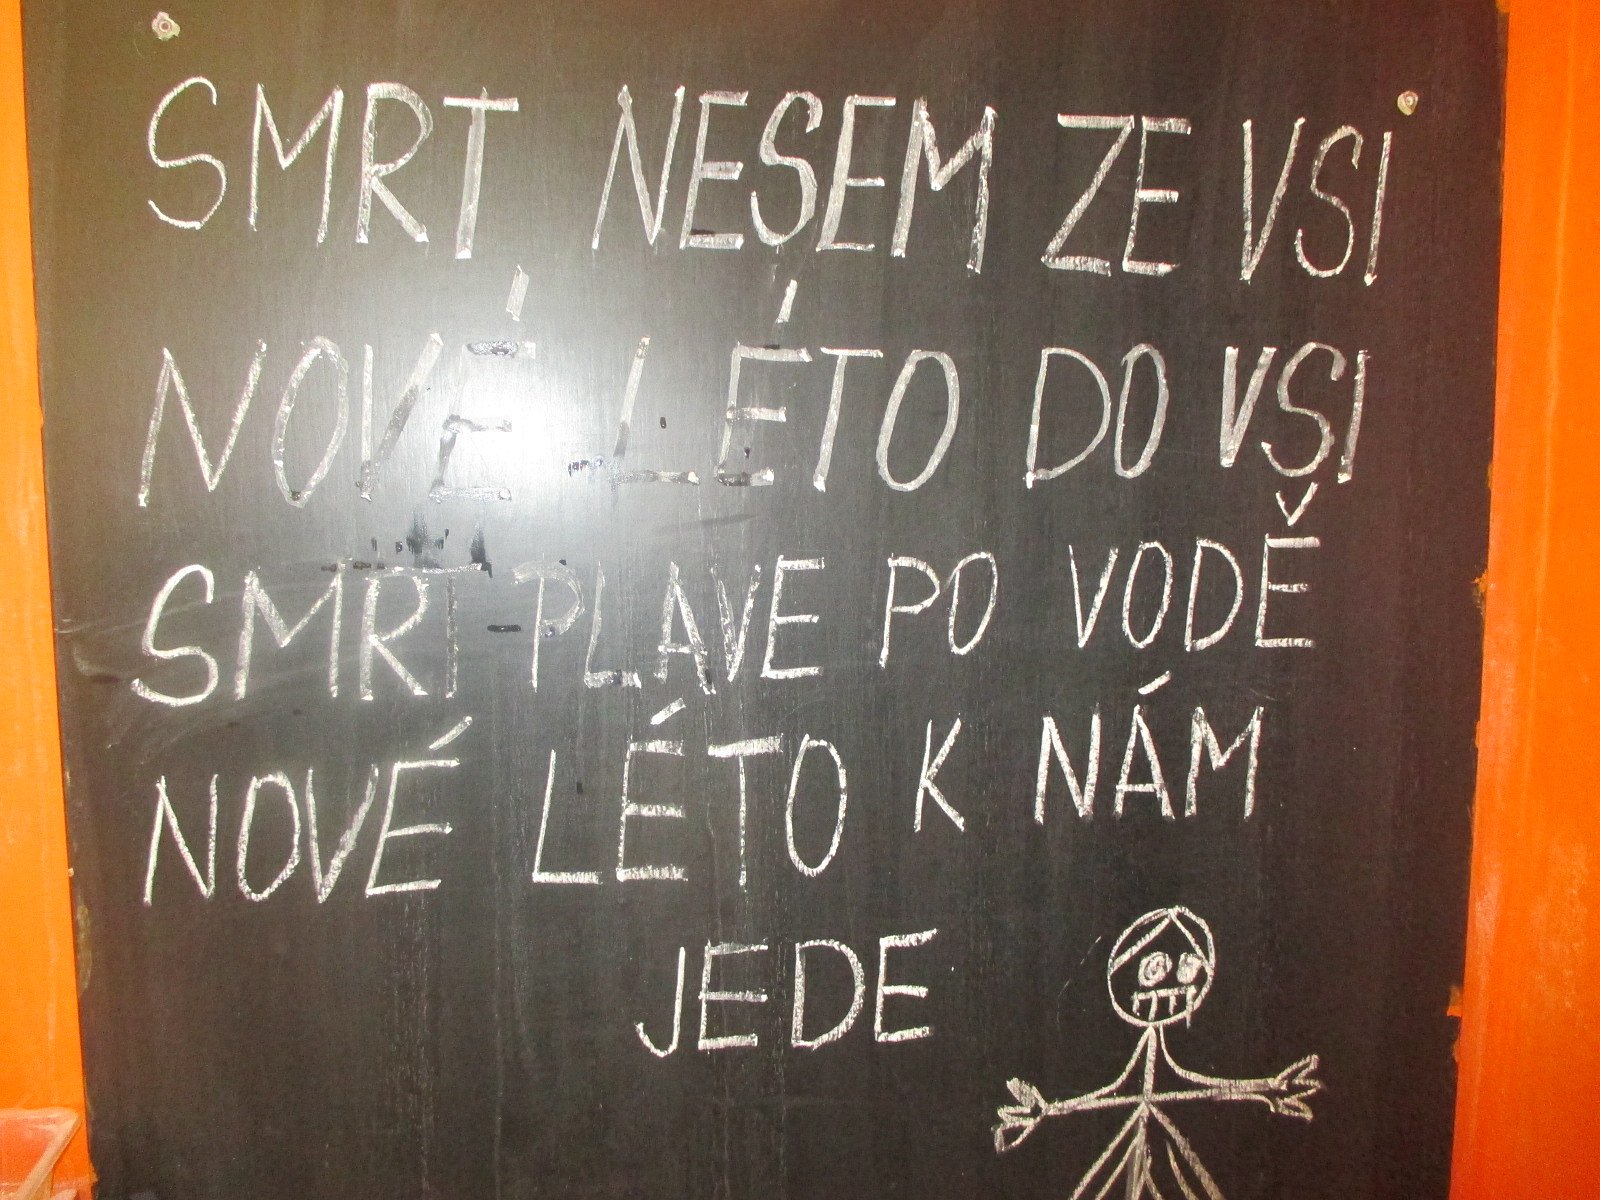 SMRT NESEM ZE VSI
NOVÉ LÉTO DO VSI
SMRT PLAVE PO VODĚ
NOVÉ LÉTO K NÁM
JEDE